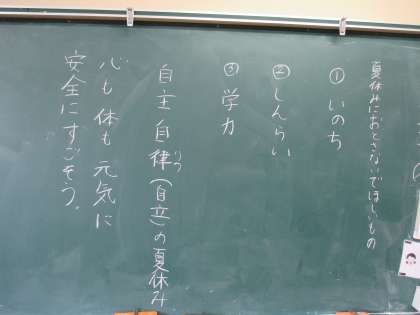 夏休みにおとさないでほしいもの
① いのち
② しんらい
③ 学力
自主 自律(自立)の夏休み
りつ
心も 体も 元気に
安全にすごそう。